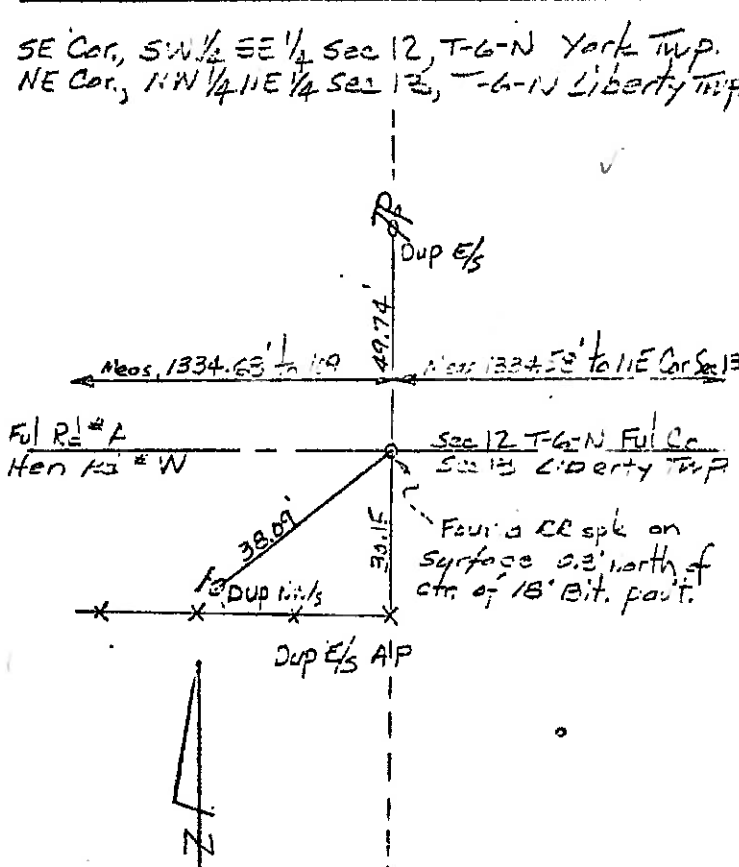 SE Cor., SW 1/4 SE 1/4 Sec 12, T-6-N York Twp.
NE Cor., NW 1/4 NE 1/4 Sec 13, T-6-N Liberty Twp.
Dup E/S
49.74'
Meas. 1334.63' to
Meas 1334.58' to NE Cor Sec 13
Ful Rd # A
Hen Rd # W
Sec 12 T-6-N Ful Co
Sec 13 Liberty Twp
38.09'
30.15
Found RR spk on
surface 0.3' north of
ctr. of 18' Bit. pav't.
Dup NW/S
Dup E/S A/P
N